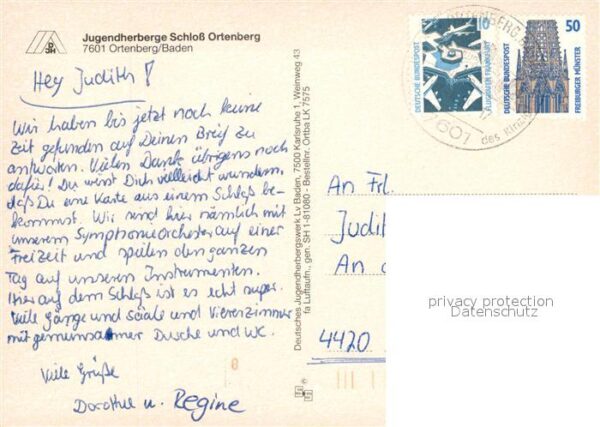 Jugendherberge Schloß Ortenberg
7601 Ortenberg/Baden
DJH
Hey Judith!
Wir haben bis jetzt noch keine
Zeit gefunden auf Deinen Brief zu
antworten. Vielen Dank übrigens noch
dafür! Du wirst Dich vielleicht wundern,
daß Du eine Karte aus einem Schloß be-
kommst. Wir sind hier nämlich mit
unserem Symphonieorchester auf einer
Freizeit und spielen den ganzen
Tag auf unseren Instrumenten.
Hier auf dem Schloß ist es echt super.
Viele Gänge und Säale und Viererzimmer
mit gemeinsamer Dusche und WC.
Viele Grüße
Dorothee u. Regine
Deutsches Jugendherbergswerk Lv Baden, 7500 Karlsruhe 1, Weinweg 43
fa Luftaufn., gen. SH 1-81080 - Bestellnr. Ortba LK 7575
10
DEUTSCHE BUNDESPOST
FLUGHAFEN FRANKFURT
50
DEUTSCHE BUNDESPOST
FREIBURGER MÜNSTER
ORTENBERG
7601
An Frl.
Judit
An d
4420
privacy protection
Datenschutz
8